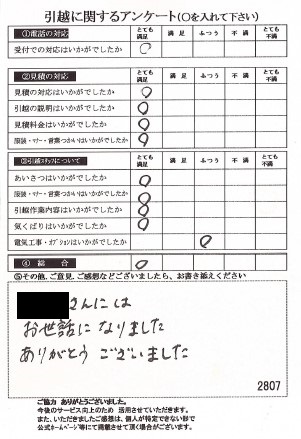 引越に関するアンケート(○を入れて下さい)
①電話の対応 とても満足 満足 ふつう 不満 とても不満
受付での対応はいかがでしたか ○
②見積の対応 とても満足 満足 ふつう 不満 とても不満
見積の対応はいかがでしたか ○
引越の説明はいかがでしたか ○
見積料金はいかがでしたか ○
服装・マナー・言葉つかいはいかがでしたか ○
③引越スタッフについて とても満足 満足 ふつう 不満 とても不満
あいさつはいかがでしたか ○
服装・マナー・言葉つかいはいかがでしたか ○
引越作業内容はいかがでしたか ○
気くばりはいかがでしたか ○
電気工事・オプションはいかがでしたか ○
④総合 ○
⑤その他、ご意見、ご感想などございましたら、お書き添えください
さんには
お世話になりました
ありがとう ございました
2807
ご協力 ありがとうございました。
今後のサービス向上のため 活用させていただきます。
また、いただきましたご感想は、個人が特定できない形で
公式ホームページ等にて掲載させて頂く場合がございます。